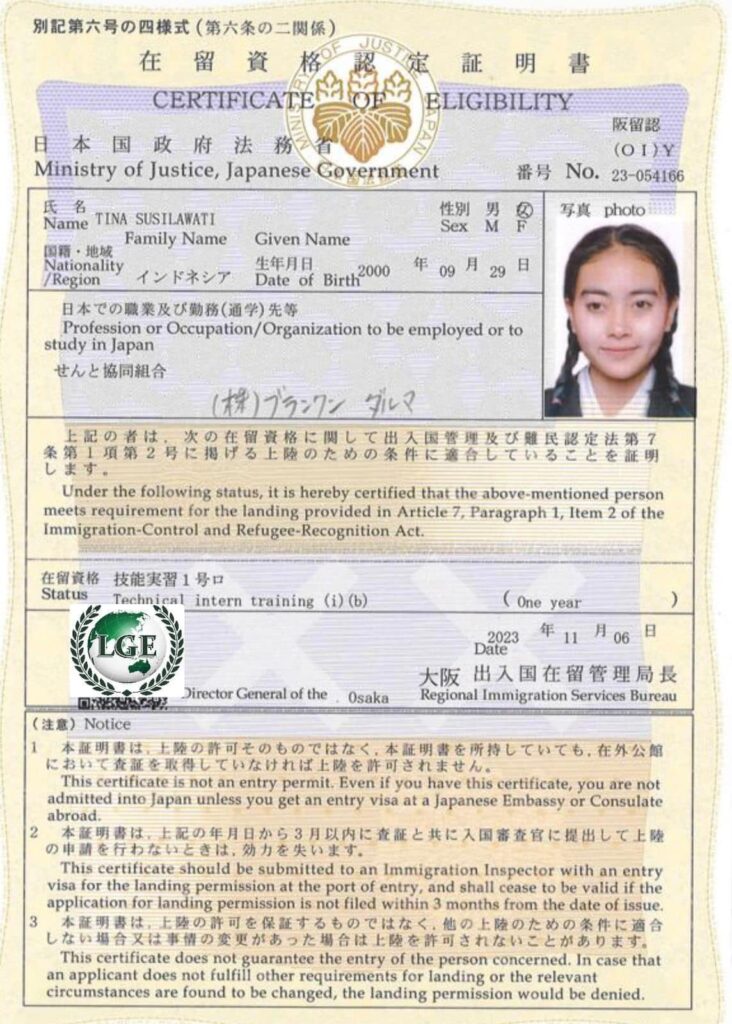 別記第六号の四様式(第六条の二関係)
在留資格認定証明書
CERTIFICATE OF ELIGIBILITY
MINISTRY OF JUSTICE, JAPAN
阪留認
日本国政府法務省
(OI)Y
Ministry of Justice, Japanese Government
番号 No. 23-054166
氏名 TINA SUSILAWATI
Name
性別 男 女
Sex M F
写真 photo
Family Name Given Name
国籍・地域 インドネシア
Nationality/Region
生年月日 2000 年 09 月 29 日
Date of Birth
日本での職業及び勤務(通学)先等
Profession or Occupation/Organization to be employed or to
study in Japan
せんと協同組合
(株)ブランワン ダルマ
上記の者は、次の在留資格に関して出入国管理及び難民認定法第7
条第1項第2号に掲げる上陸のための条件に適合していることを証明
します。
Under the following status, it is hereby certified that the above-mentioned person
meets requirement for the landing provided in Article 7, Paragraph 1, Item 2 of the
Immigration-Control and Refugee-Recognition Act.
在留資格 技能実習1号ロ
Status Technical intern training (i)(b) ( One year )
2023 年 11 月 06 日
Date
LGE
大阪 出入国在留管理局長
Director General of the Osaka Regional Immigration Services Bureau
(注意) Notice
1 本証明書は、上陸の許可そのものではなく、本証明書を所持していても、在外公館
において査証を取得していなければ上陸を許可されません。
This certificate is not an entry permit. Even if you have this certificate, you are not
admitted into Japan unless you get an entry visa at a Japanese Embassy or Consulate
abroad.
2 本証明書は、上記の年月日から3月以内に査証と共に入国審査官に提出して上陸
の申請を行わないときは、効力を失います。
This certificate should be submitted to an Immigration Inspector with an entry
visa for the landing permission at the port of entry, and shall cease to be valid if the
application for landing permission is not filed within 3 months from the date of issue.
3 本証明書は、上陸の許可を保証するものではなく、他の上陸のための条件に適合
しない場合又は事情の変更があった場合は上陸を許可されないことがあります。
This certificate does not guarantee the entry of the person concerned. In case that
an applicant does not fulfill other requirements for landing or the relevant
circumstances are found to be changed, the landing permission would be denied.